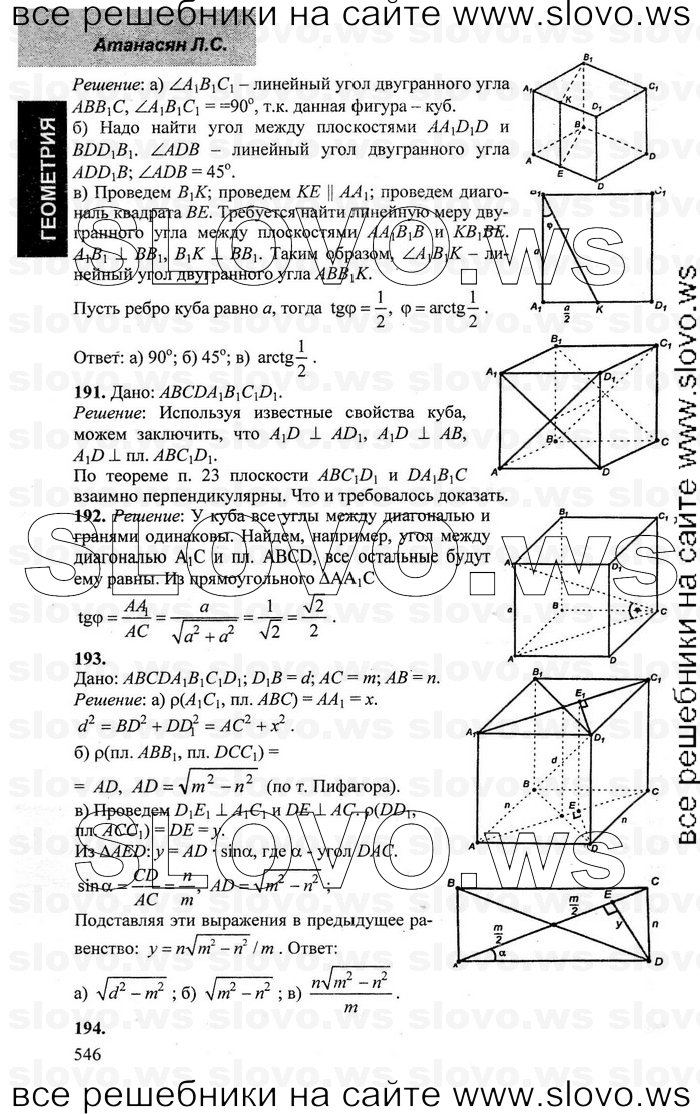 все решебники на сайте www.slovo.ws
Атанасян Л.С.
ГЕОМЕТРИЯ
Решение: а) ∠A₁B₁C₁ – линейный угол двугранного угла
ABB₁C, ∠A₁B₁C₁ = =90°, т.к. данная фигура – куб.
б) Надо найти угол между плоскостями AA₁D₁D и
BDD₁B₁. ∠ADB – линейный угол двугранного угла
ADD₁B; ∠ADB = 45°.
в) Проведем B₁K; проведем KE || AA₁; проведем диаго-
наль квадрата BE. Требуется найти линейную меру дву-
гранного угла между плоскостями AA₁B₁B и KB₁BE.
A₁B₁ ⊥ BB₁, B₁K ⊥ BB₁. Таким образом, ∠A₁B₁K – ли-
нейный угол двугранного угла ABB₁K.
Пусть ребро куба равно a, тогда tgφ = 1/2, φ = arctg 1/2 .
Ответ: а) 90°; б) 45°; в) arctg 1/2 .
191. Дано: ABCDA₁B₁C₁D₁.
Решение: Используя известные свойства куба,
можем заключить, что A₁D ⊥ AD₁, A₁D ⊥ AB,
A₁D ⊥ пл. ABC₁D₁.
По теореме п. 23 плоскости ABC₁D₁ и DA₁B₁C
взаимно перпендикулярны. Что и требовалось доказать.
192. Решение: У куба все углы между диагональю и
гранями одинаковы. Найдем, например, угол между
диагональю A₁C и пл. ABCD, все остальные будут
ему равны. Из прямоугольного ΔAA₁C
tgφ = AA₁/AC = a/√(a² + a²) = 1/√2 = √2/2 .
193.
Дано: ABCDA₁B₁C₁D₁; D₁B = d; AC = m; AB = n.
Решение: а) ρ(A₁C₁, пл. ABC) = AA₁ = x.
d² = BD² + DD₁² = AC² + x² .
б) ρ(пл. ABB₁, пл. DCC₁) =
= AD, AD = √(m² − n²) (по т. Пифагора).
в) Проведем D₁E₁ ⊥ A₁C₁ и DE ⊥ AC. ρ(DD₁,
пл. ACC₁) = DE = y.
Из ΔAED: y = AD · sinα, где α - угол DAC.
sin α = CD/AC = n/m, AD = √(m² − n²) ;
Подставляя эти выражения в предыдущее ра-
венство: y = n√(m² − n²) / m . Ответ:
а) √(d² − m²) ; б) √(m² − n²) ; в) n√(m² − n²)/m .
194.
546
все решебники на сайте www.slovo.ws
все решебники на сайте www.slovo.ws
SLOVO.ws
SLOVO.ws
SLOVO.ws